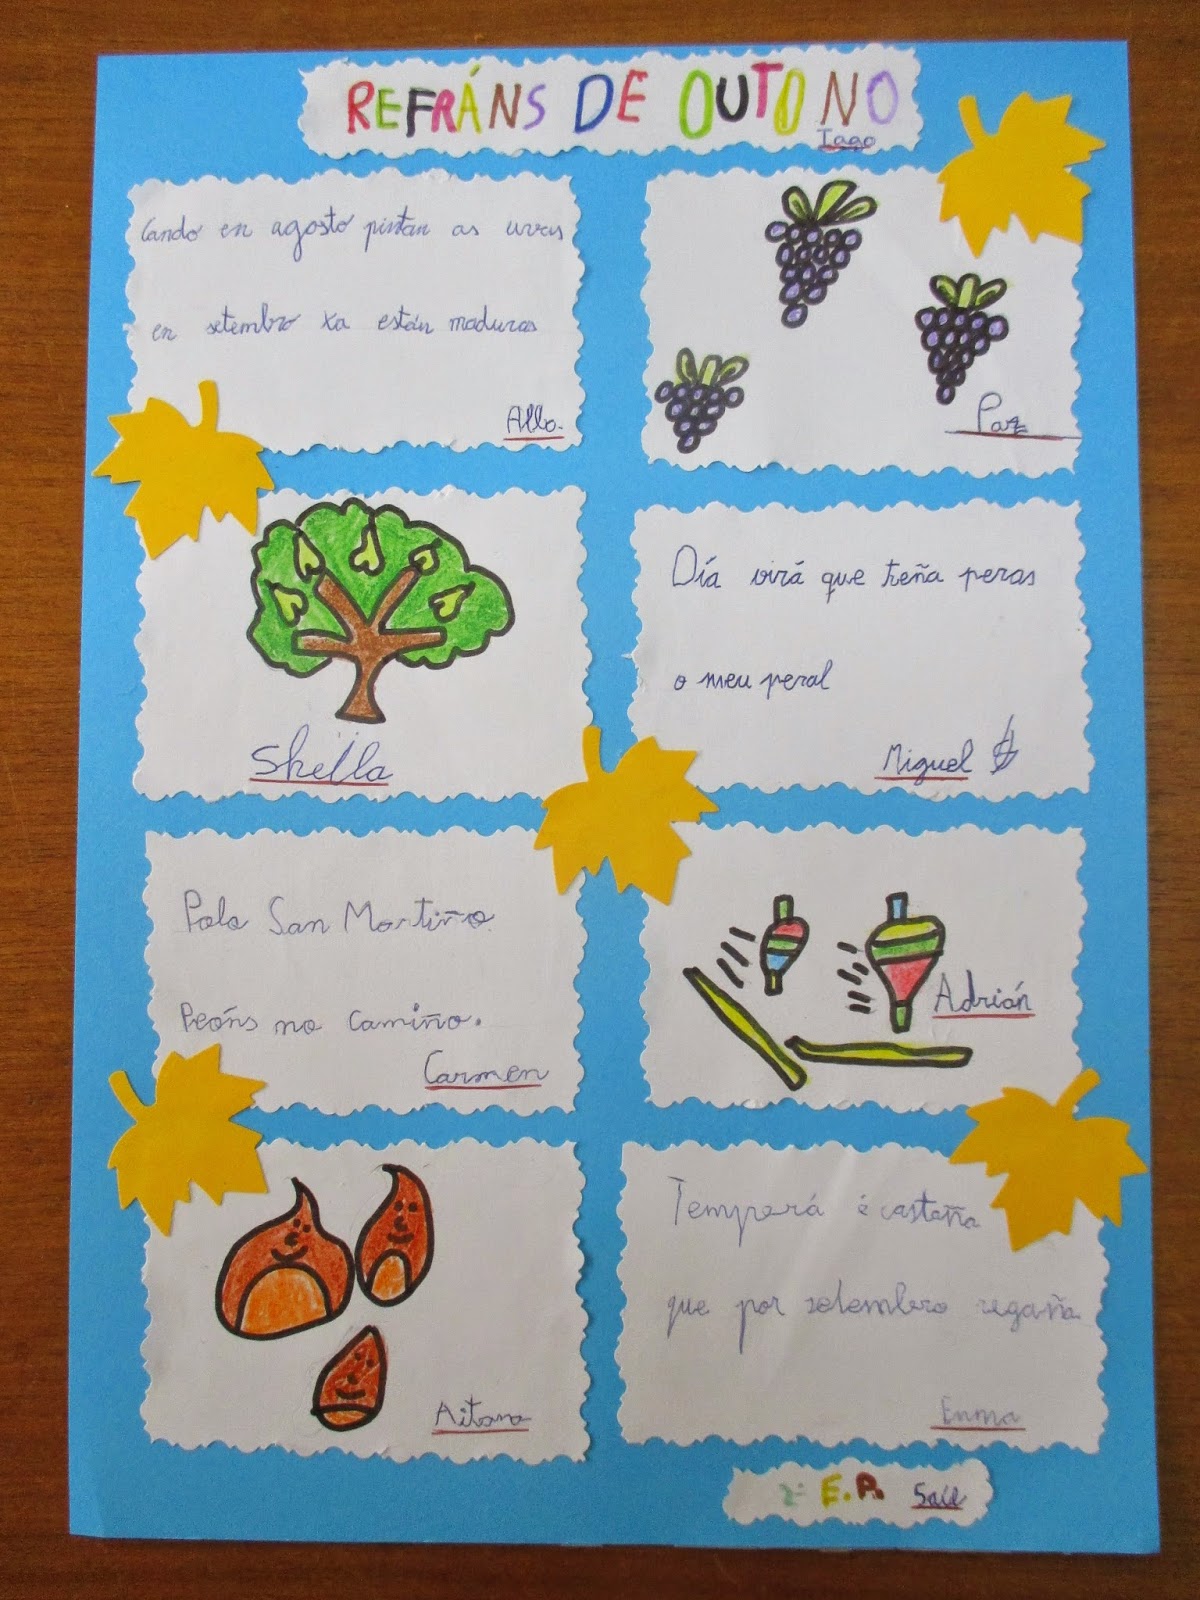 REFRÁNS DE OUTONO
Iago
Cando en agosto pintan as uvas
en setembro xa están maduras
Alba
Paz
Sheila
Día virá que teña peras
o meu peral
Miguel
Polo San Martiño
Peóns no camiño.
Carmen
Adrián
Aitana
Temperá é castaña
que por setembro regaña
Enma
2º E.P.